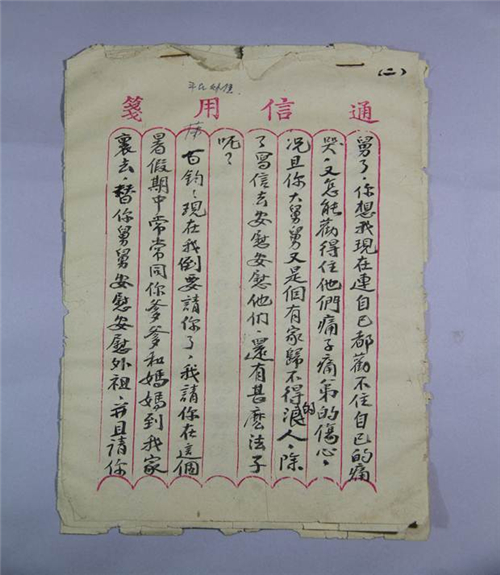 (二)
通信用箋
舅了，你想我現在連自己都勸不住自己的痛
哭，又怎能勸得住他們痛子痛弟的傷心，
况且你大舅舅又是個有家歸不得的浪人，除
了寫信去安慰安慰他们，還有甚麽法子
呢？
百鈞：現在我倒要請你了，我請你在這個
暑假期中常常同你爹爹和媽媽到我家
裏去，替你舅舅安慰安慰外祖，并且請你